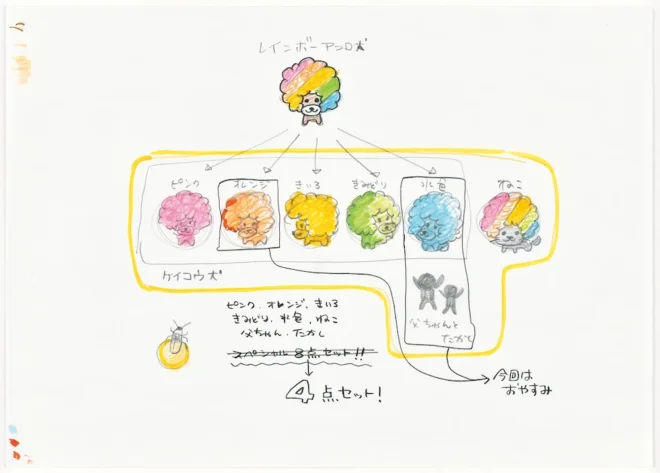 レインボーアフロ犬
ピンク
オレンジ
きいろ
きみどり
水色
ねこ
ケイコウ犬
父ちゃんと
たかし
ピンク、オレンジ、きいろ
きみどり、水色、ねこ
父ちゃん、たかし
スペシャル8点セット!!
4点セット!
今回は
おやすみ